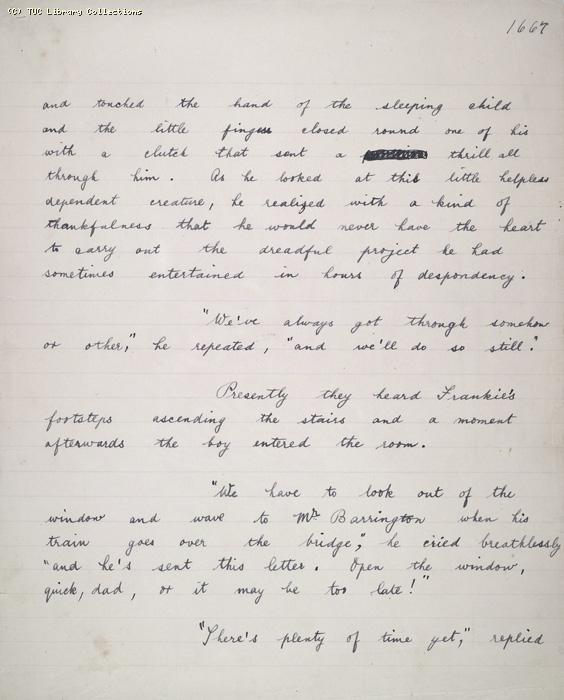 (C) TUC Library Collections
1667
and touched the hand of the sleeping child
and the little fingers closed round one of his
with a clutch that sent a thrill all
through him. As he looked at this little helpless
dependent creature, he realized with a kind of
thankfulness that he would never have the heart
to carry out the dreadful project he had
sometimes entertained in hours of despondency.
"We've always got through somehow
or other," he repeated, "and we'll do so still."
Presently they heard Frankie's
footsteps ascending the stairs and a moment
afterwards the boy entered the room.
"We have to look out of the
window and wave to Mr Barrington when his
train goes over the bridge," he cried breathlessly
"and he's sent this letter. Open the window,
quick, dad, or it may be too late!"
"There's plenty of time yet," replied